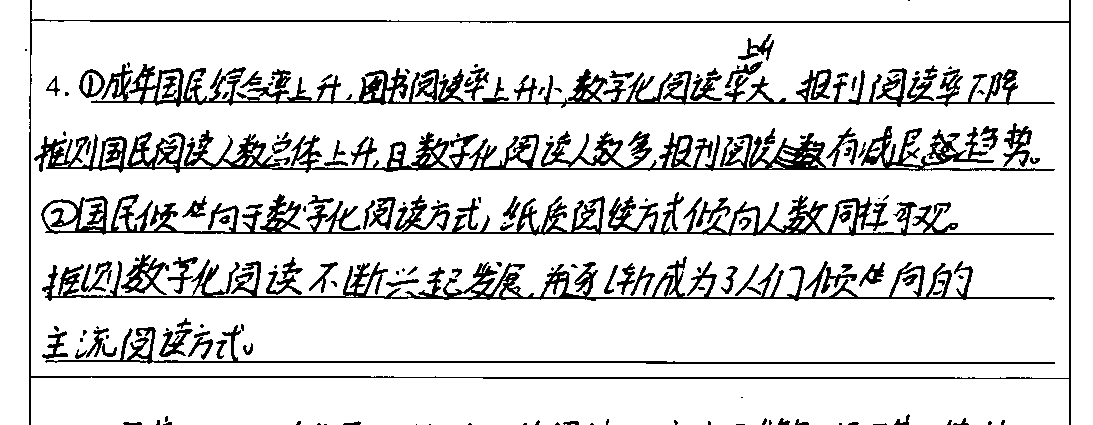 4.①成年国民综合率上升,图书阅读率上升小,数字化阅读率上升大,报刊阅读率下降
推测国民阅读人数总体上升,且数字化阅读人数多,报刊阅读数有减退趋势。
②国民倾向于数字化阅读方式,纸质阅读方式倾向人数同样可观。
推测数字化阅读不断兴起发展,并逐渐成为了人们倾向的
主流阅读方式。